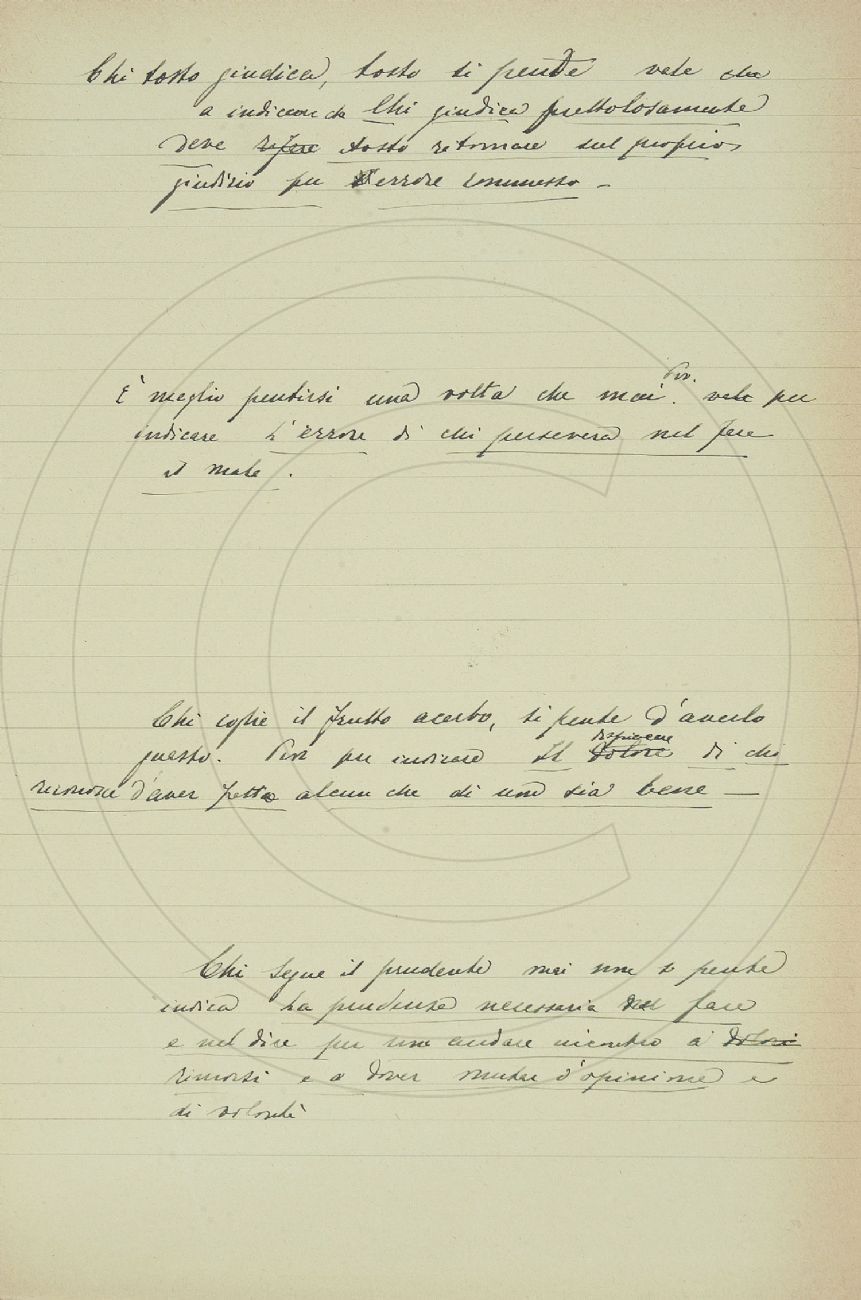 Chi tosto giudica, tosto si pente vale che
a indicare che Chi giudica frettolosamente
deve rifare tosto ritornare sul proprio
giudizio per errore commesso -
Prov.
È meglio pentirsi una volta che mai. vale per
indicare L'errore di chi persevera nel fare
il male.
Chi coglie il frutto acerbo, si pente d'averlo
dispiacere
guasto. Prov per indicare Il dolore di chi
riconosce d'aver fatto alcun che di non sia bene —
Chi segue il prudente mai non si pente
indica La prudenza necessaria nel fare
e nel dire per non andare incontro a dolori
rimorsi e a dover mutar d'opinione e
di volontà